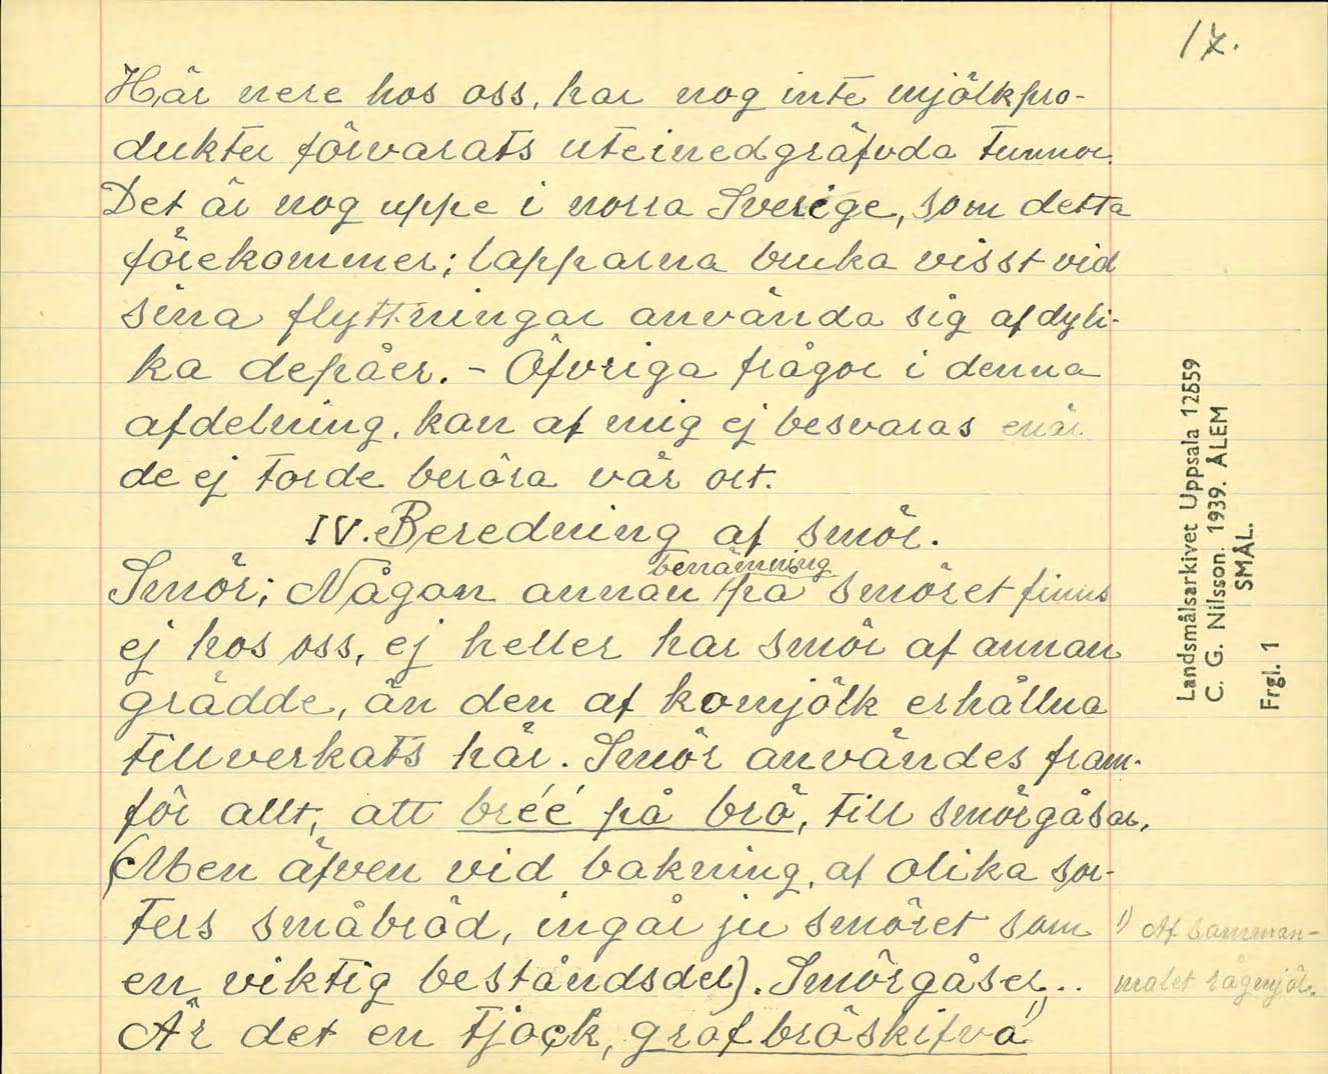 17.
Här nere hos oss, har nog inte mjölkpro-
dukter förvarats ute i nedgräfvda tunnor.
Det är nog uppe i norra Sverige, som detta
förekommer; lapparna bruka visst vid
sina flyttningar använda sig af dyli-
ka depåer. - Öfvriga frågor i denna
afdelning, kan af mig ej besvaras enär
de ej torde beröra vår ort.
IV. Beredning af smör.
benämning
Smör; Någon annan på smöret finns
ej hos oss, ej heller har smör af annan
grädde, än den af komjölk erhållna
tillverkats här. Smör användes fram-
för allt, att bréé på brö, till smörgåsar,
(Men äfven vid bakning, af olika sor-
ters småbröd, ingår ju smöret som
en viktig beståndsdel). Smörgåser...
Är det en tjock, grof bröskifva 1)
1) Af samman-
malet rågmjöl.
Landsmålsarkivet Uppsala 12559
C. G. Nilsson. 1939. ÅLEM
SMÅL.
Frgl. 1